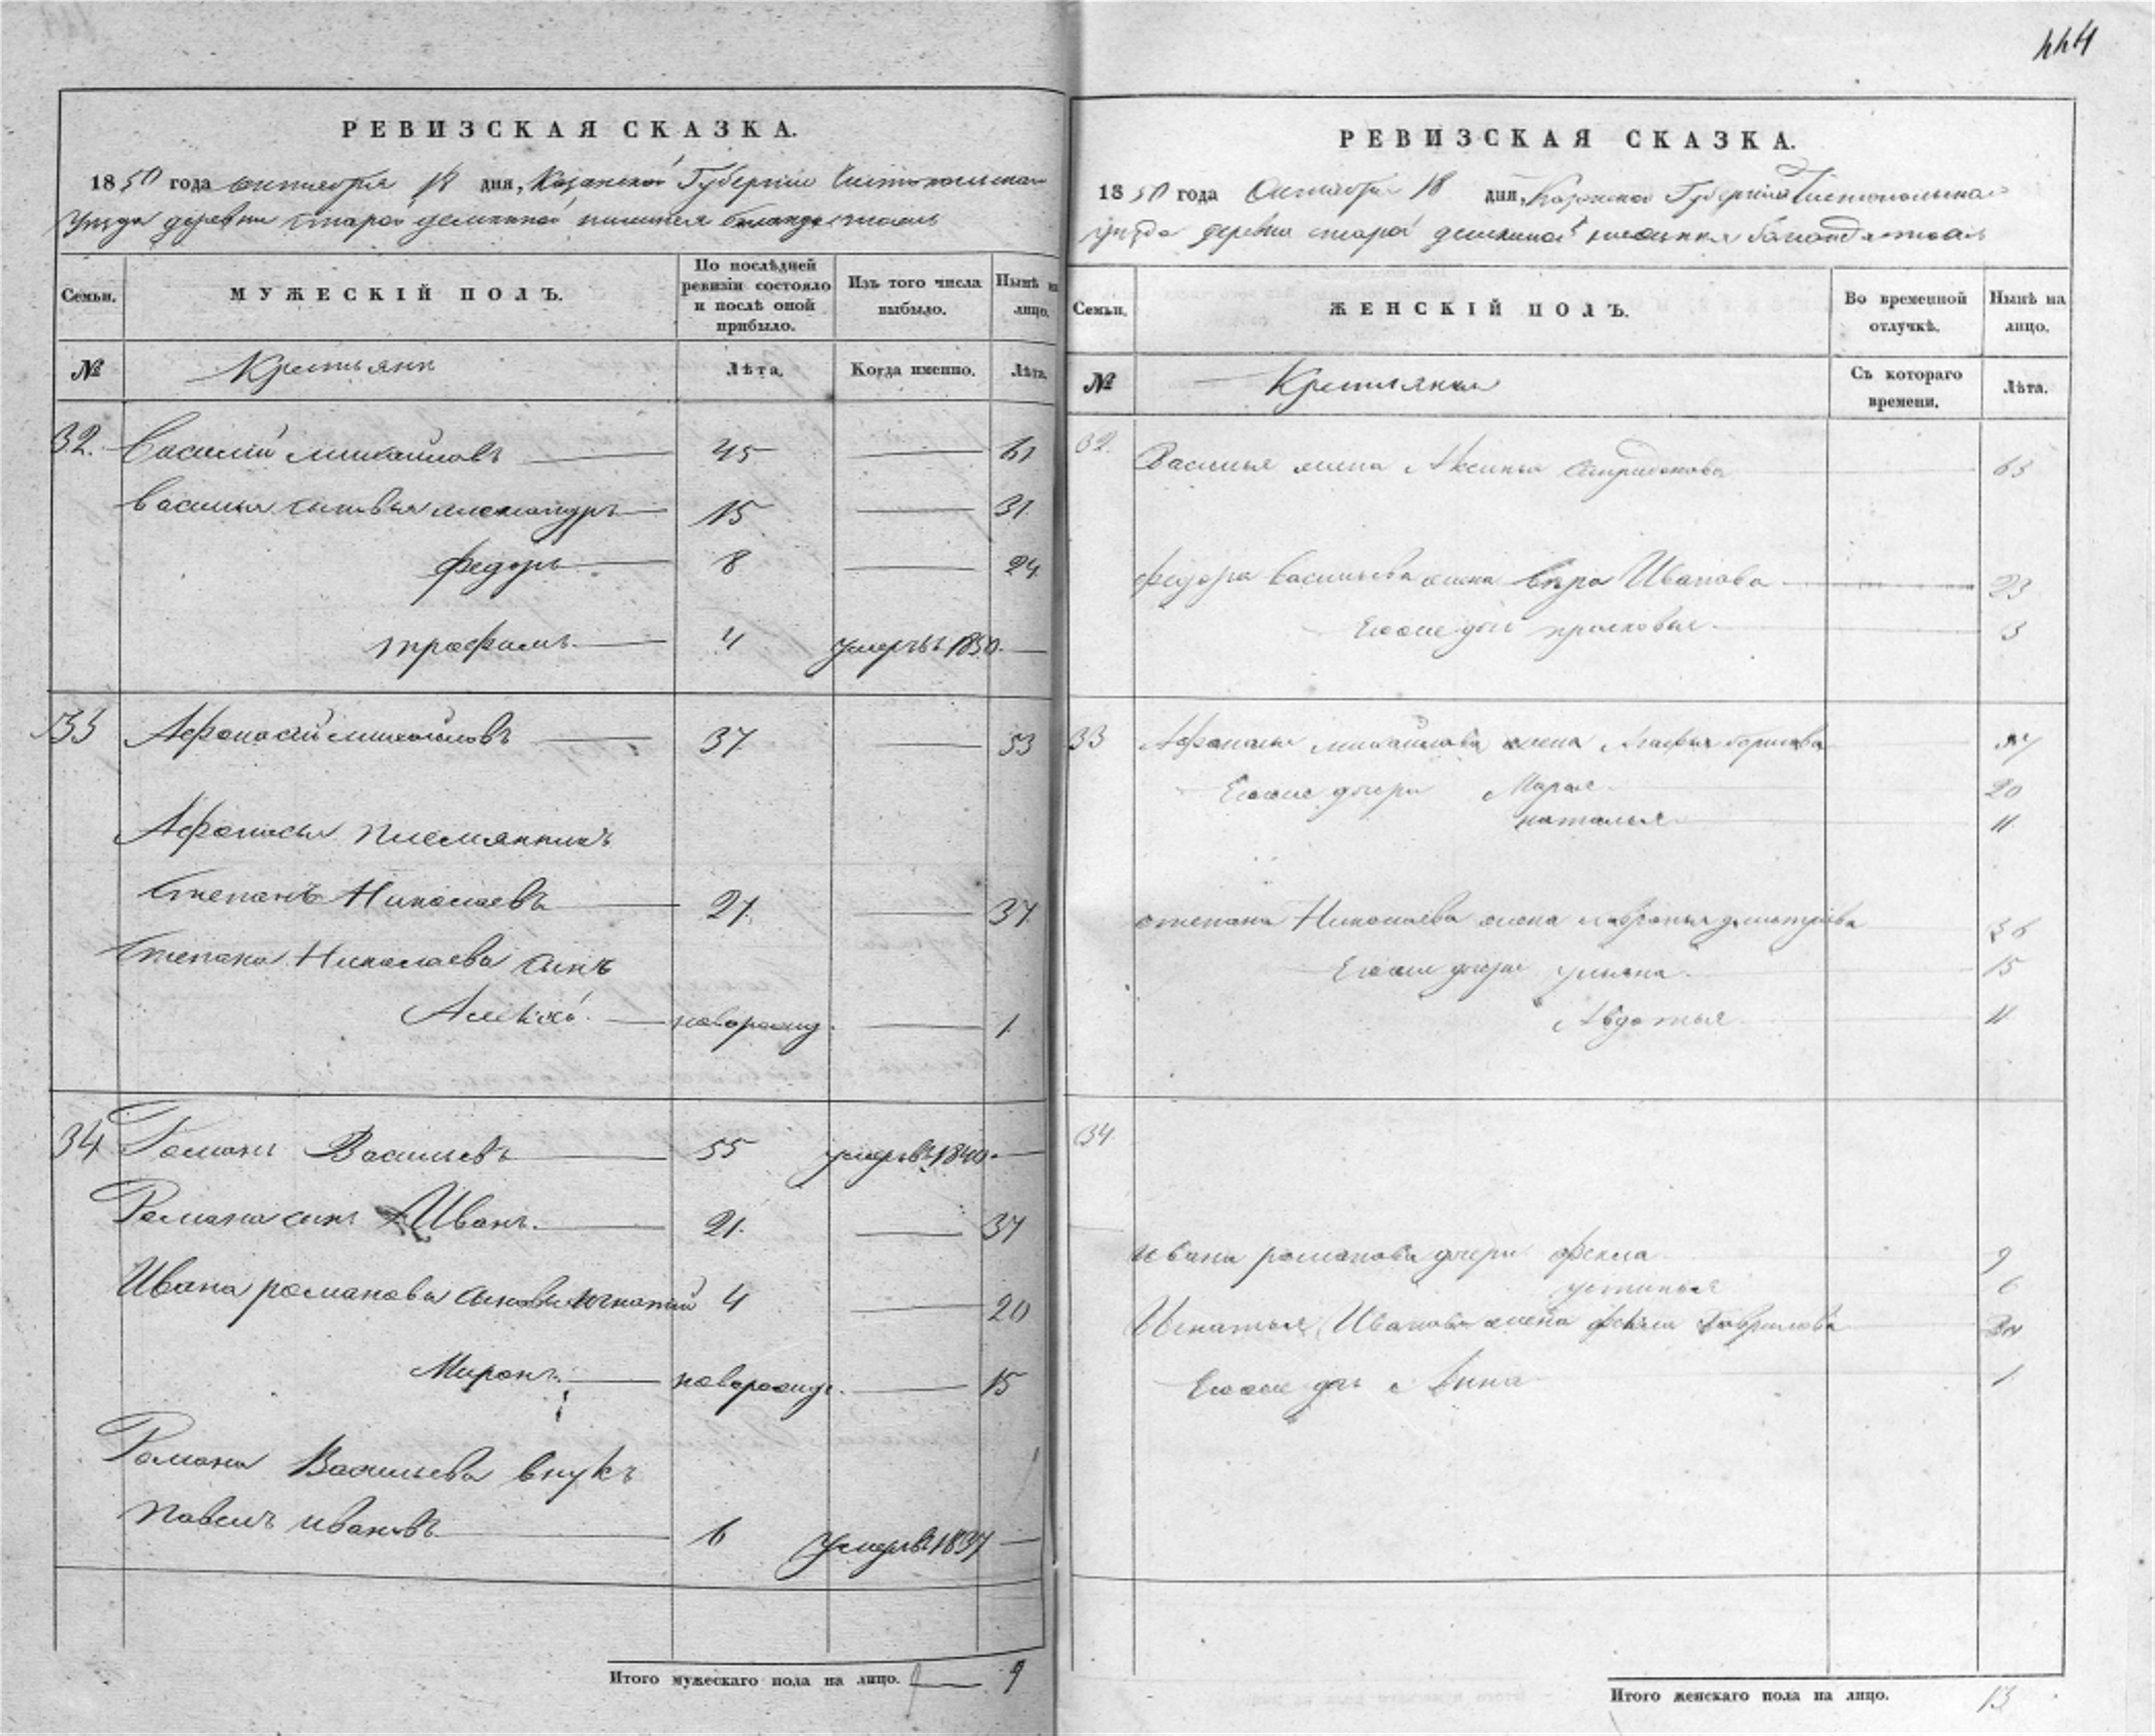 444
РЕВИЗСКАЯ СКАЗКА.
1850 года октября 18 дня, Казанской Губернии Чистопольскаго
Уезда деревни старой
Семьи.
МУЖЕСКІЙ ПОЛЪ.
По послѣдней ревизіи состояло и послѣ оной прибыло.
Изъ того числа выбыло.
Нынѣ на лицо.
№
Крестьяне
Лѣта.
Когда именно.
Лѣта.
32. Василий Михайловъ 45 — 61
Василья сыновья Александръ 15 — 31
Федоръ 8 — 24
Трофимъ 4 умеръ въ 1850. —
33 Афонасий Михайловъ 37 — 53
Афонасья племянникъ
Степанъ Николаевъ 21. — 37
Степана Николаева сынъ
Алексей новорожд. — 1
34 Романъ Васильевъ 55 умеръ въ 1840. —
Романа сынъ Иванъ. 21. — 37
Ивана романова сыновья игнатий 4 — 20
Миронъ. новорожд. — 15
Романа Васильева внукъ
Павелъ ивановъ 6 умеръ въ 1837 —
Итого мужескаго пола на лицо. 9
РЕВИЗСКАЯ СКАЗКА.
1850 года Октября 18 дня, Казанской Губернии Чистопольскаго
уезда деревни старой
Семьи.
ЖЕНСКІЙ ПОЛЪ.
Во временной отлучкѣ.
Нынѣ на лицо.
№
Крестьянки
Съ котораго времени.
Лѣта.
32. Василья жена Аксинья Спиридонова 63
Федора Васильева жена Вера Иванова 23
Его же дочь прасковья 3
33 Афонасья михайлова жена Агафья борисова
Его же дочери Марья 20
наталья 11
степана Николаева жена дмитриева 36
Его же дочери ульяна 15
Авдотья 11
34
ивана романова дочери фекла 9
устинья 6
Игнатья Иванова жена фекла Гаврилова
Его же дочь Анна 1
Итого женскаго пола на лицо. 13